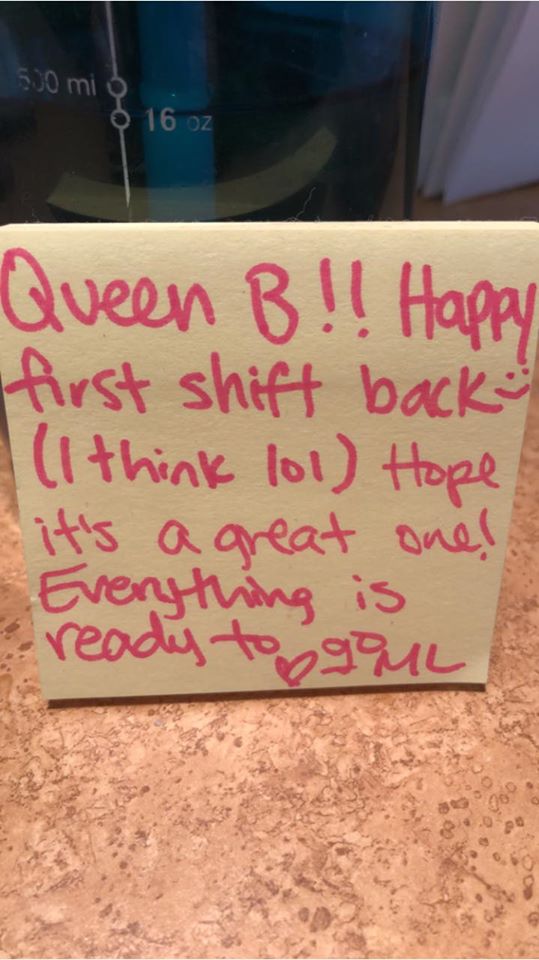 500 ml
16 oz
Queen B!! Happy
first shift back :)
(I think lol) Hope
it's a great one!
Everything is
ready to go
♡ ML